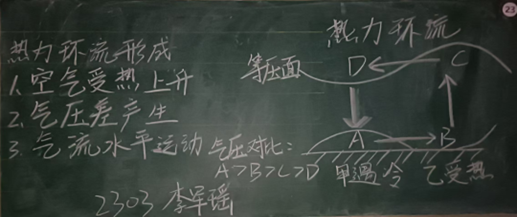 23
热力环流形成
1.空气受热上升
2.气压差产生
3.气流水平运动
热力环流
等压面
D
C
A
B
气压对比:
A>B>C>D
甲遇冷
乙受热
2303 李军瑶